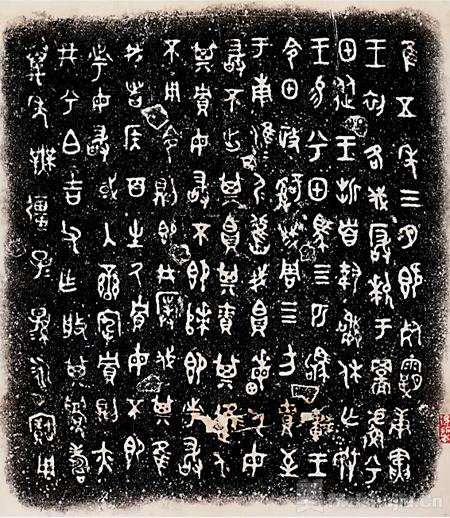 隹五年三月既死霸庚寅
王初各伐玁狁于䣙𧇰兮
甲從王折首執訊休亡敃
王易兮甲馬四匹駒車王
令甲政𤔲成周四方責至
于南淮尸淮尸舊我𪧶畮人毋
敢不出其𪧶其責其進人
其貯毋敢不即次即市敢
不用令則即井撲伐其隹
我者侯百生厥貯毋不即
市毋敢或入蠻宄貯則亦
井兮白吉父乍般其眉壽
萬年無疆子子孫孫永寶用